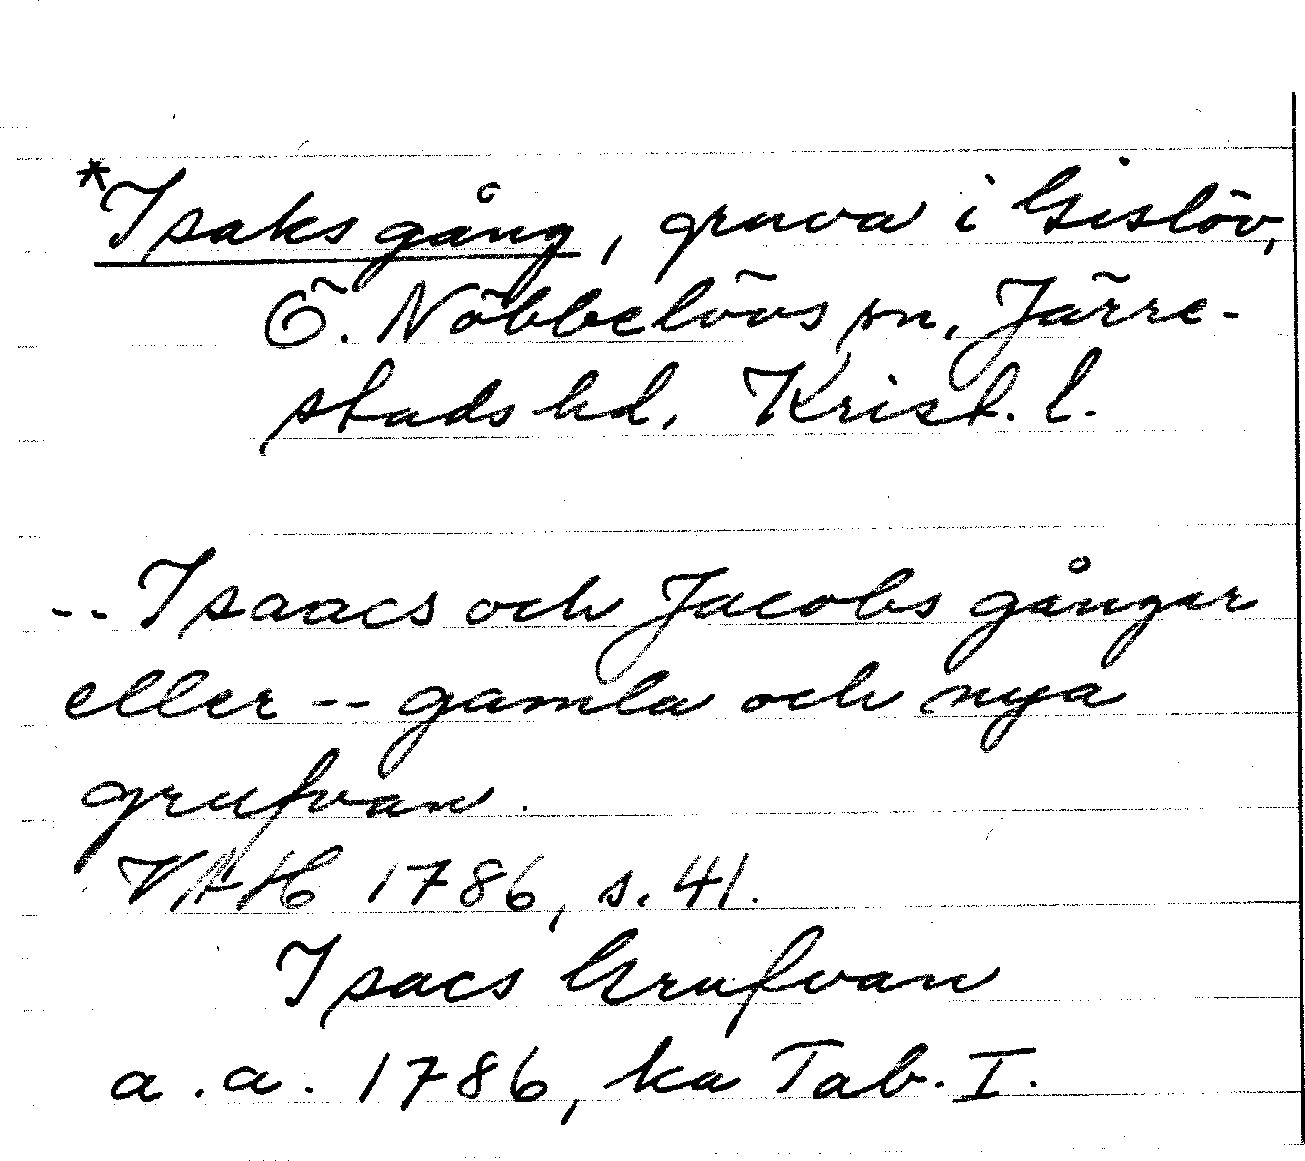 *Isaks gång, gruva i Gislöv,
Ö. Nöbbelövs sn, Järre-
stads hd, Krist. l.
-- Isaacs och Jacobs gångar
eller -- gamla och nya
grufvan.
VAH 1786, s. 41.
Isacs Grufvan
a. a. 1786, ka Tab. I.